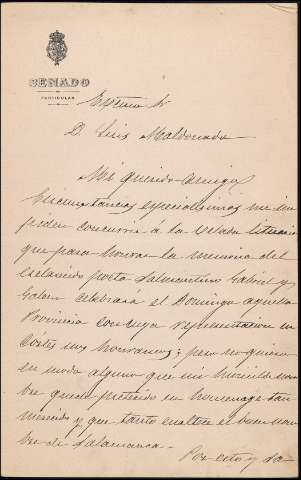 SENADO
PARTICULAR
Excmo Sr
D. Luis Maldonado
Mi querido amigo
Circunstancias especialísimas me im
piden concurrir a la velada literaria
que para honrar la memoria del
esclarecido poeta salmantino Gabriel y
Galan celebrará el Domingo aquella
Provincia con cuya representacion en
Cortes nos honramos; pero no quiero
en modo alguno que mi humilde nom
bre quede preterido en homenage tan
merecido y que tanto enaltece el buen nom
bre de Salamanca.
Por esto y da